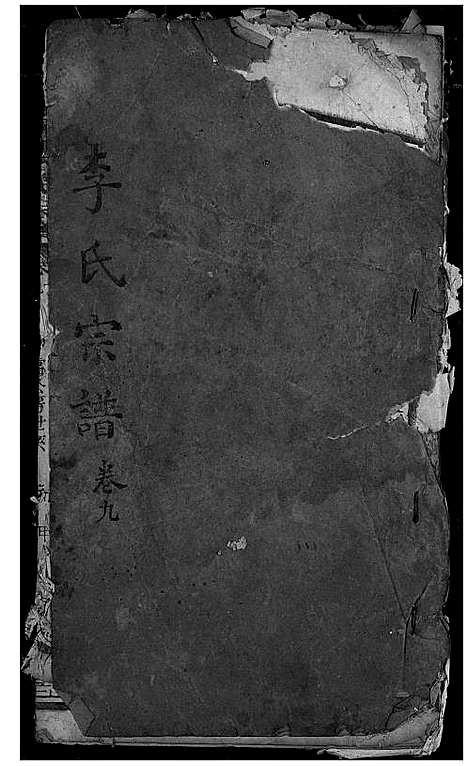 李氏宗譜 卷九